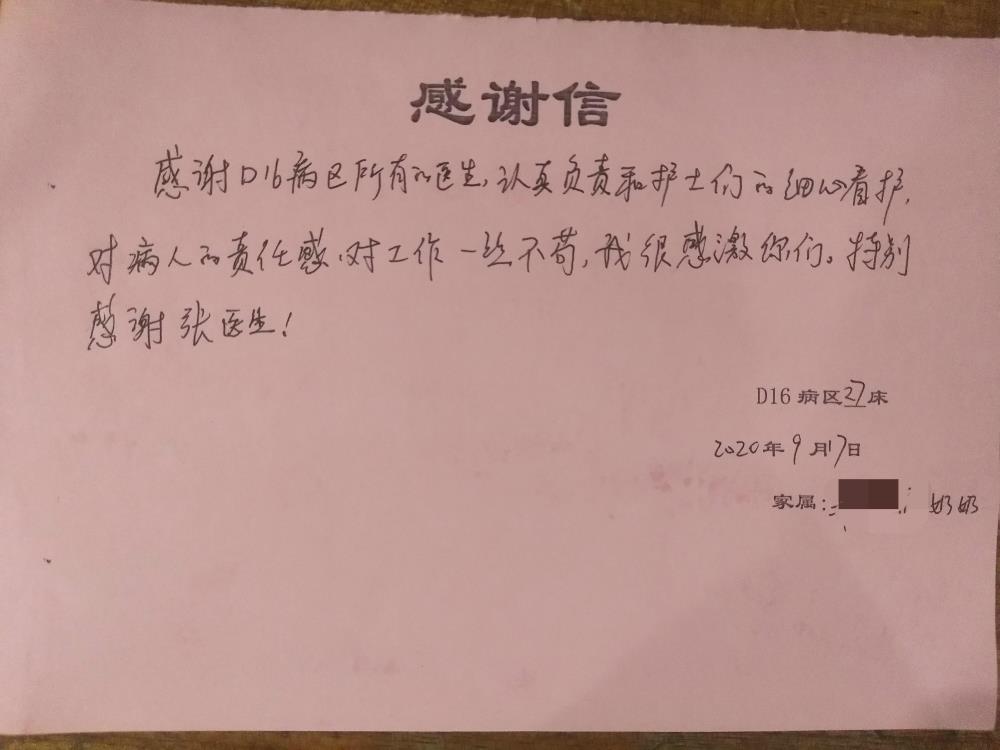 感谢信
感谢D16病区所有的医生,认真负责和护士们的细心看护,
对病人的责任感、对工作一丝不苟,我很感激你们。特别
感谢张医生!
D16病区27床
2020年9月17日
家属: 奶奶